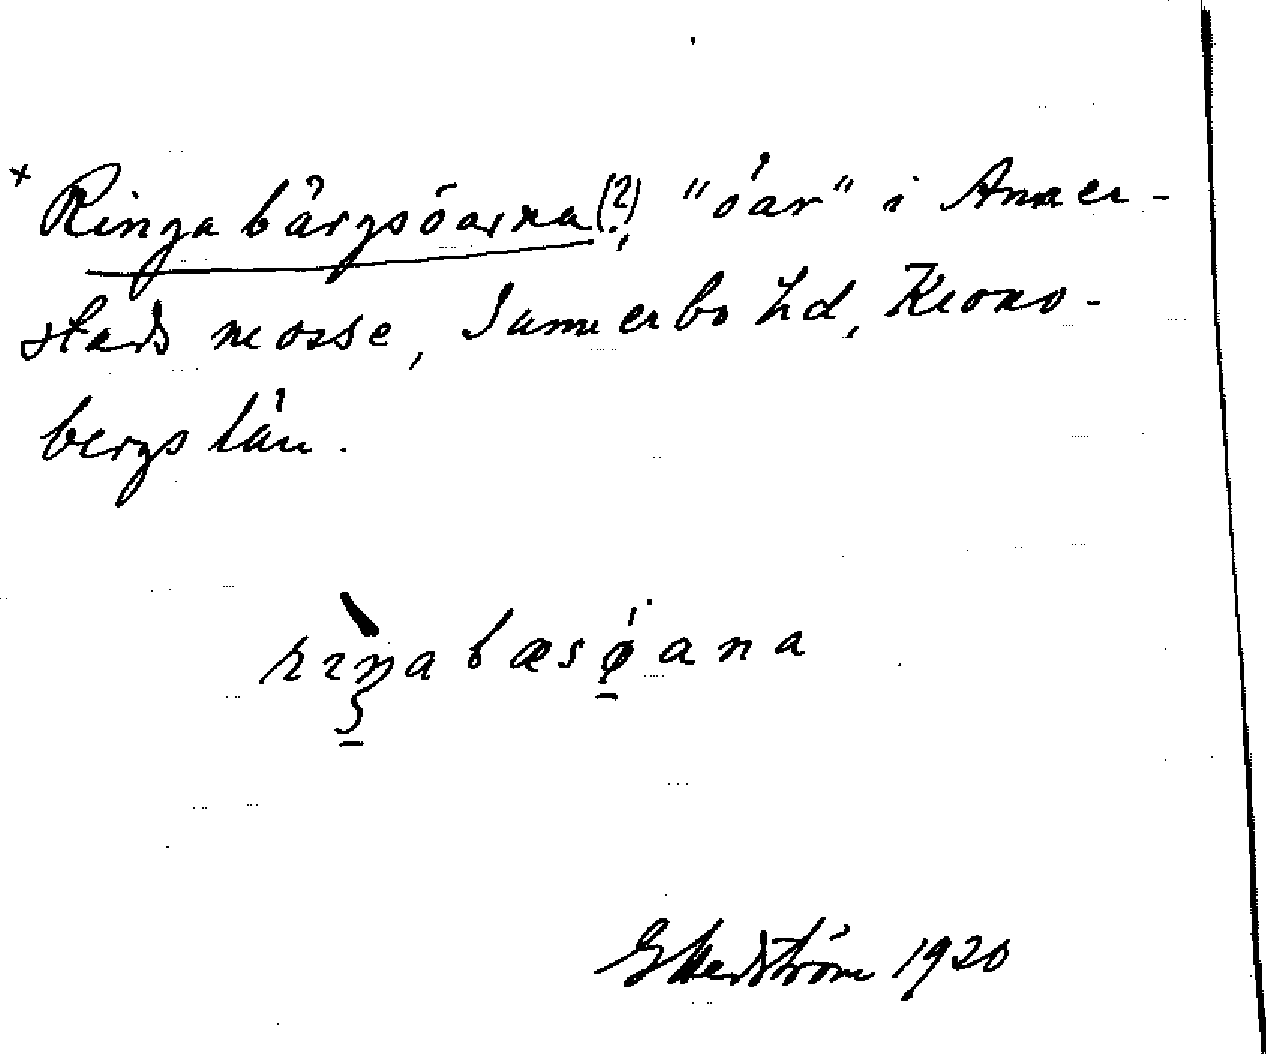 × Ringabärgsöarna(?), "öar" i Anner-
stads mosse, Sunnerbo hd, Krono-
bergs län.
G Hedström 1920